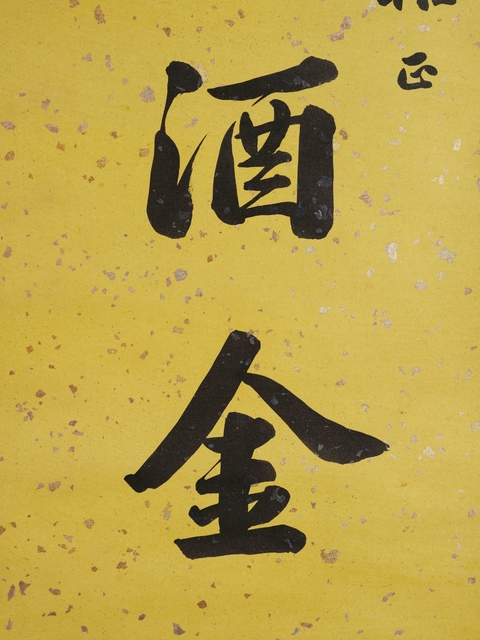 正
酒金